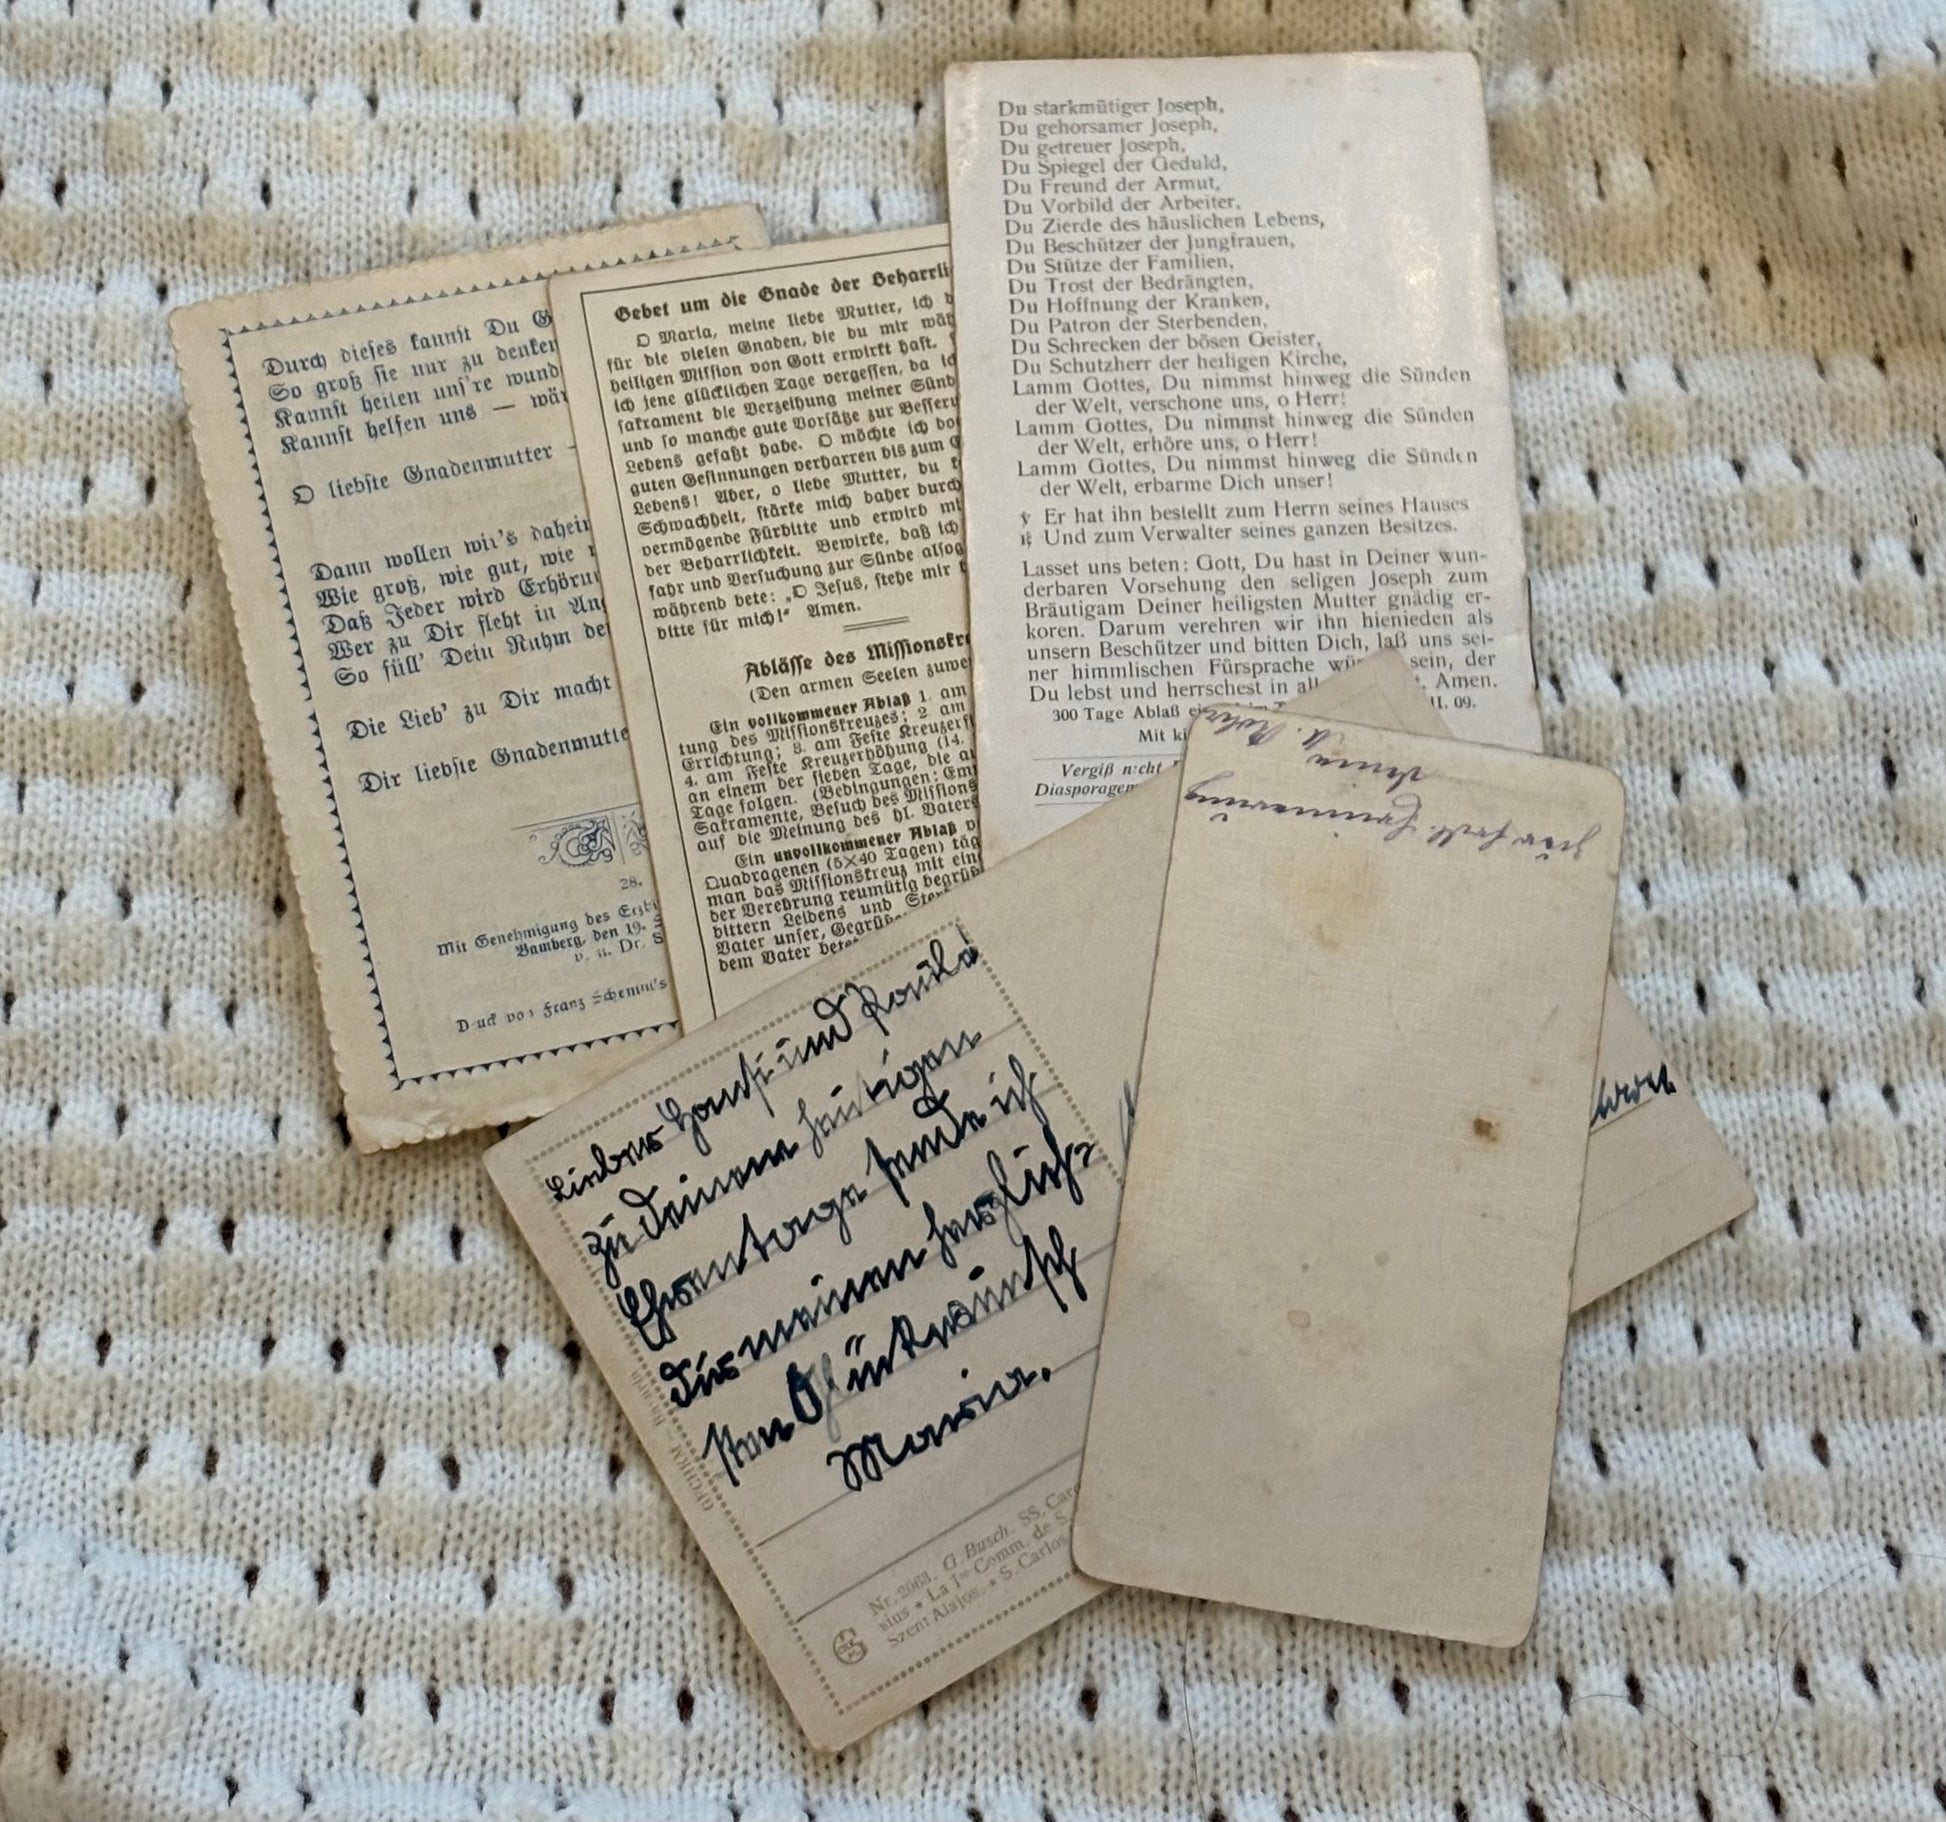 Durch dieses kannst Du G
So groß sie nur zu denken
Kannst heilen uns're wund
Kannst helfen uns — wär
O liebste Gnadenmutter -
Dann wollen wir's daheim
Wie groß, wie gut, wie
Daß Jeder wird Erhörun
Wer zu Dir fleht in Ang
So füll' Dein Ruhm de
Die Lieb' zu Dir macht
Dir liebste Gnadenmutte
28.
Mit Genehmigung des Erzbi
Bamberg, den 19.
v. u. Dr. S
Druck von Franz Schemm's
Gebet um die Gnade der Beharrli
O Maria, meine liebe Mutter, ich d
für die vielen Gnaden, die du mir wäh
heiligen Mission von Gott erwirkt hast.
ich jene glücklichen Tage vergessen, da ich
sakrament die Verzeihung meiner Sünd
und so manche gute Vorsätze zur Besseru
Lebens gefaßt habe. O möchte ich do
guten Gesinnungen verharren bis zum
Lebens! Aber, o liebe Mutter, du k
Schwachheit, stärke mich daher durch
vermögende Fürbitte und erwirb mi
der Beharrlichkeit. Bewirke, daß ich
fahr und Versuchung zur Sünde alsog
während bete: „O Jesus, stehe mir
bitte für mich!“ Amen.
Ablässe des Missionskre
(Den armen Seelen zuwe
Ein vollkommener Ablaß 1. am
tung des Missionskreuzes; 2. am
Errichtung; 3. am Feste Kreuzerf
4. am Feste Kreuzerhöhung (14.
an einem der sieben Tage, die a
Tage folgen. (Bedingungen: Em
Sakramente, Besuch des Missions
auf die Meinung des hl. Vaters
Ein unvollkommener Ablaß v
Quadragenen (5×40 Tagen) täg
man das Missionskreuz mit ein
der Verehrung reumütig begrüß
bittern Leidens und Ster
Vater unser, Gegrüße
dem Vater betet
Du starkmütiger Joseph,
Du gehorsamer Joseph,
Du getreuer Joseph,
Du Spiegel der Geduld,
Du Freund der Armut,
Du Vorbild der Arbeiter,
Du Zierde des häuslichen Lebens,
Du Beschützer der Jungfrauen,
Du Stütze der Familien,
Du Trost der Bedrängten,
Du Hoffnung der Kranken,
Du Patron der Sterbenden,
Du Schrecken der bösen Geister,
Du Schutzherr der heiligen Kirche,
Lamm Gottes, Du nimmst hinweg die Sünden
der Welt, verschone uns, o Herr!
Lamm Gottes, Du nimmst hinweg die Sünden
der Welt, erhöre uns, o Herr!
Lamm Gottes, Du nimmst hinweg die Sünden
der Welt, erbarme Dich unser!
℣ Er hat ihn bestellt zum Herrn seines Hauses
℟ Und zum Verwalter seines ganzen Besitzes.
Lasset uns beten: Gott, Du hast in Deiner wun-
derbaren Vorsehung den seligen Joseph zum
Bräutigam Deiner heiligsten Mutter gnädig er-
koren. Darum verehren wir ihn hienieden als
unsern Beschützer und bitten Dich, laß uns sei-
ner himmlischen Fürsprache wür sein, der
Du lebst und herrschest in all t. Amen.
300 Tage Ablaß II. 09.
Mit ki
Vergiß nicht
Diasporagem
Zur frdl. Erinnerung
Lieber Hansi und Paula!
zu Deinem heutigen
Ehrentage sende ich
Dir meinen herzlich-
sten Glückwunsch
Maria.
Nr. 2063. G. Busch. SS. Car
sius • La Iᵉ Comm. de S.
Szent Alajos. • S. Carlos